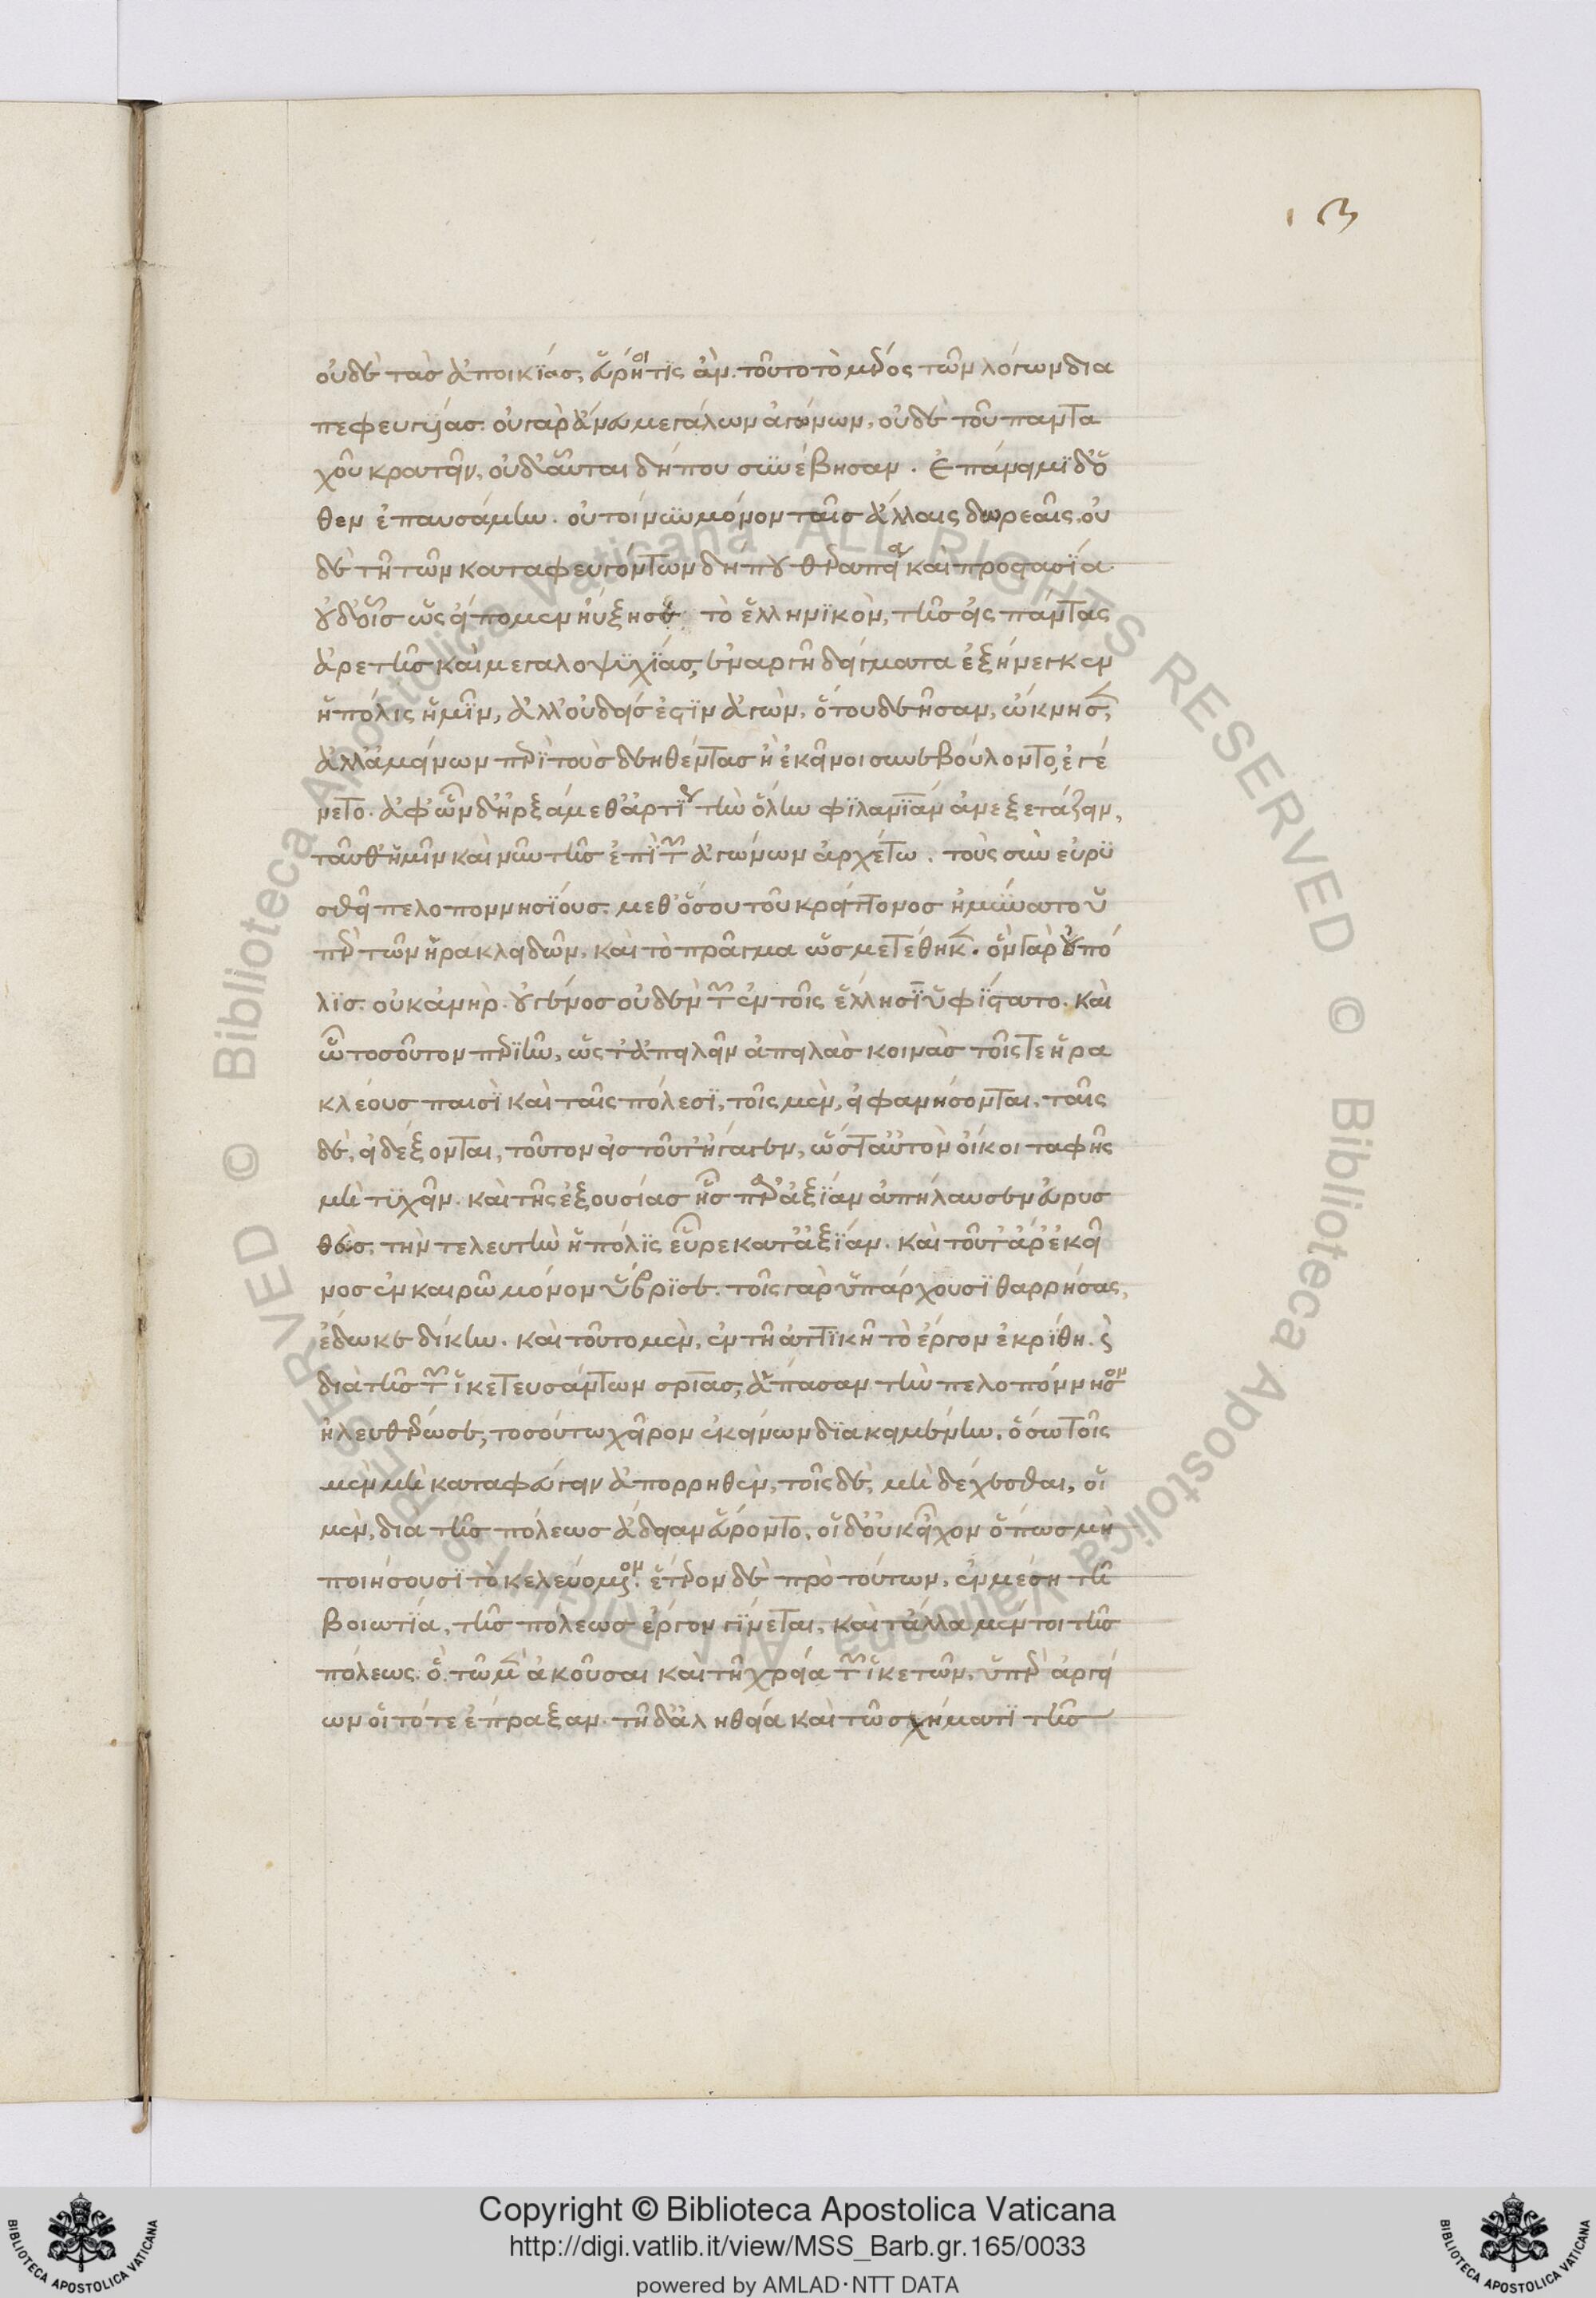 13
οὐδὲ τὰς ἀποικίας, εὕρη τις ἂν τοῦτο τὸ μέρος τῶν λόγων δια
πεφευγυίας. οὐ γὰρ ἄνευ μεγάλων ἀγώνων, οὐδὲ τοῦ παντα
χοῦ κρατεῖν, οὐδ' αὗται δήπου συνέβησαν. Ἐπάνειμι δ' ὅ
θεν ἐπαυσάμην. οὐ τοίνυν μόνον ταῖς ἄλλαις δωρεαῖς, οὐ
δὲ τῇ τῶν καταφευγόντων δήπου θεραπείᾳ καὶ προστασίᾳ
οὐδ' οἷς ὡς εἴπομεν ηὔξησε τὸ ἑλληνικὸν, τῆς εἰς πάντας
ἀρετῆς καὶ μεγαλοψυχίας, ἐναργῆ δείγματα ἐξήνεγκεν
ἡ πόλις ἡμῖν, ἀλλ' οὐδείς ἐστιν ἀγὼν, ὅτου δεῆσαν, ὤκνησε,
ἀλλ' ἀμείνων περὶ τοὺς δεηθέντας ἢ ἐκεῖνοι συνεβούλοντο, ἐγέ
νετο. ἀφ' ὧν δ' ἠρξάμεθ' ἄρτι τὴν ὅλην φιλανθρωπίαν ἀνεξετάζειν,
ταῦθ' ἡμῖν καὶ νῦν τῆς ἐπὶ τῶν ἀγώνων ἀρχέτω. τοὺς σὺν εὐρυ
σθεῖ πελοποννησίους. μεθ' ὅσου τοῦ κρείττονος ἠμύνατο ὑ
πὲρ τῶν ἡρακλειδῶν, καὶ τὸ πρᾶγμα ὡς μετέθηκεν. ὃν γὰρ οὐ πό
λις. οὐκ ἀνὴρ. οὐ γένος οὐδὲν τῶν ἐν τοῖς ἕλλησιν ὑφίστατο. καὶ
ᾧ τοσοῦτον περιῆν, ὥστ' ἀπειλεῖν ἀπειλὰς κοινὰς τοῖς τε ἡρα
κλέους παισὶ καὶ ταῖς πόλεσι, τοῖς μὲν, εἰ φανήσονται, ταῖς
δὲ, εἰ δέξονται, τοῦτον εἰς τοῦτ' ἤγαγεν, ὥστ' αὐτὸν οἴκοι ταφῆς
μὴ τυχεῖν. καὶ τῆς ἐξουσίας ἧς παρ' ἀξίαν ἀπήλαυσεν εὐρυσ
θεὺς. τὴν τελευτὴν ἡ πόλις εὗρε κατ' ἀξίαν. καὶ τοῦτ' ἄρ' ἐκεῖ
νος ἐν καιρῷ μόνον ὕβρισε. τοῖς γὰρ ὑπάρχουσι θαρρήσας,
ἔδωκε δίκην. καὶ τοῦτο μὲν, ἐν τῇ ἀττικῇ τὸ ἔργον ἐκρίθη. καὶ
διὰ τῆς τῶν ἱκετευσάντων σωτηρίας, ἅπασαν τὴν πελοπόννησον
ἠλευθέρωσε, τοσούτῳ χεῖρον ἐκείνων διακειμένην. ὅσῳ τοῖς
μὲν μὴ καταφεύγειν ἀπορρηθὲν, τοῖς δὲ, μὴ δέχεσθαι, οἱ
μὲν, δια τῆς πόλεως ἄδειαν εὕροντο, οἱ δ' οὐκ εἶχον ὅπως μὴ
ποιήσουσι τὸ κελευόμενον. ἕτερον δὲ πρὸ τούτων, ἐν μέσῃ τῇ
βοιωτίᾳ, τῆς πόλεως ἔργον γίνεται, καὶ τἄλλα μέντοι τῆς
πόλεως. ὃ τῷ μὲν ἀκοῦσαι καὶ τῇ χρείᾳ τῶν ἱκετῶν, ὑπὲρ ἀργεί
ων οἱ τότε ἔπραξαν. τῇ δ' ἀληθείᾳ καὶ τῷ σχήματι τῆς
Copyright © Biblioteca Apostolica Vaticana
http://digi.vatlib.it/view/MSS_Barb.gr.165/0033
powered by AMLAD·NTT DATA